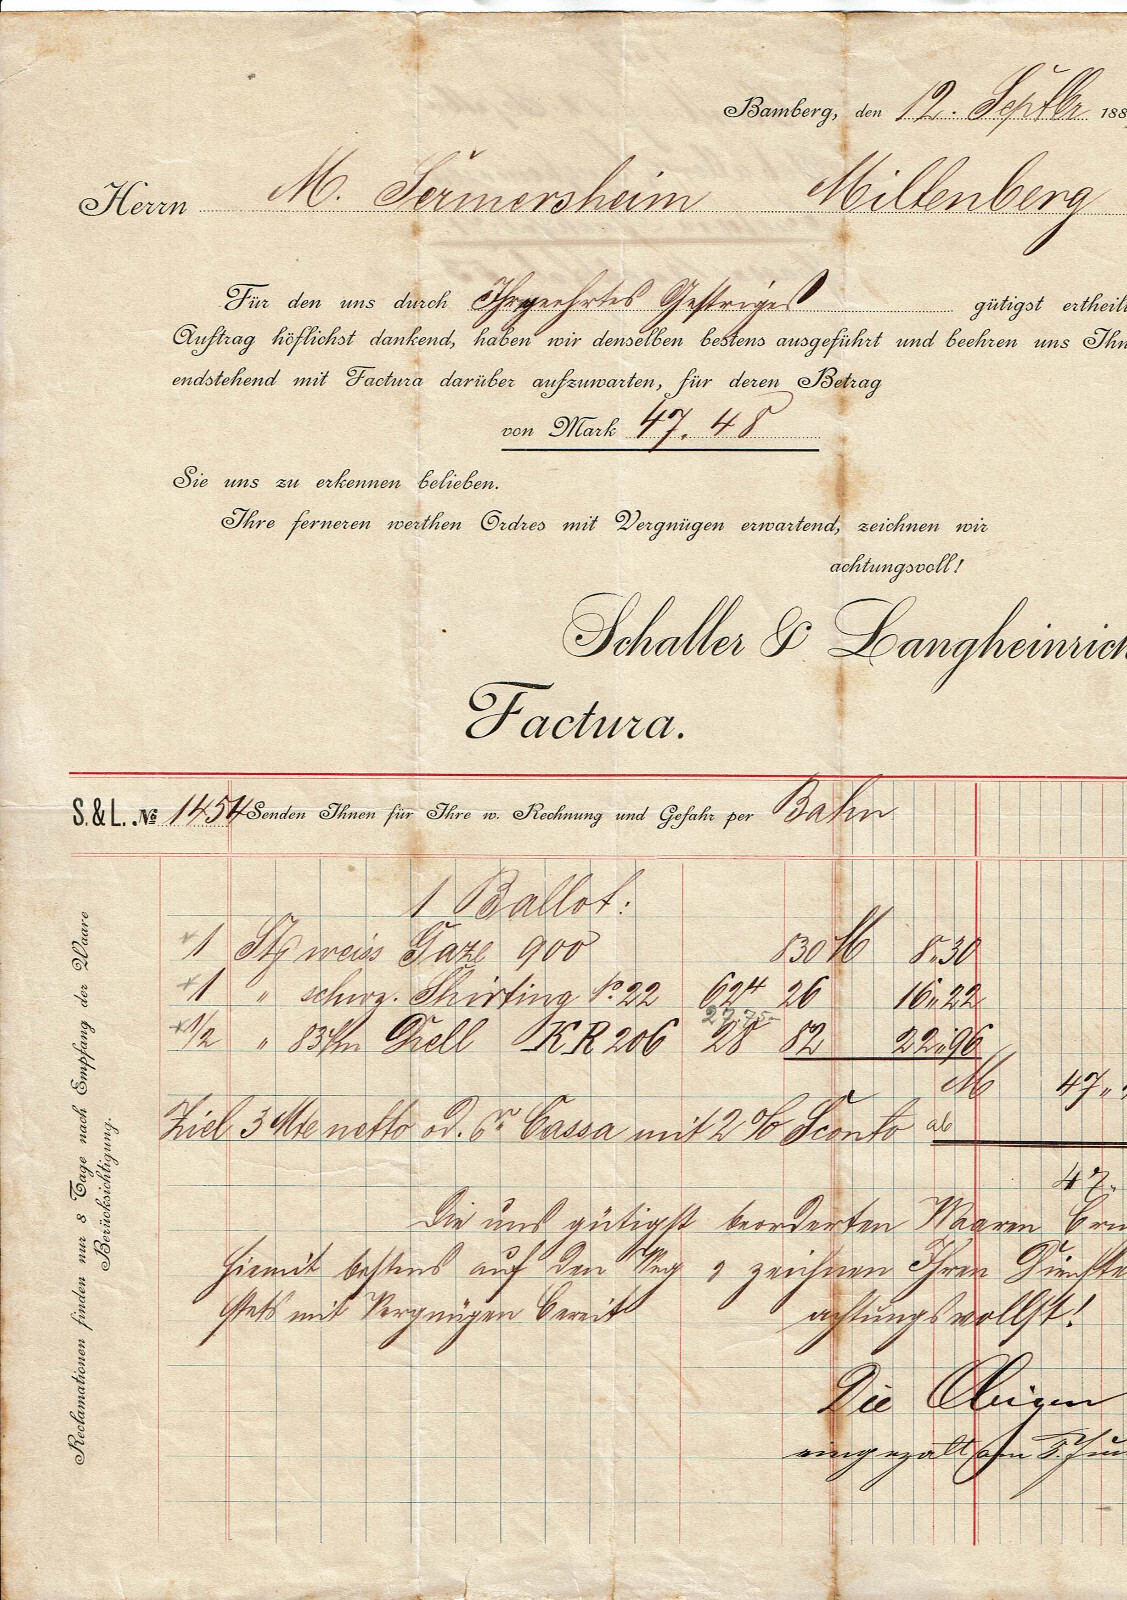 Bamberg, den 12. Septbr 188
Herrn M. Sermersheim Miltenberg
Für den uns durch Ihr geehrtes Gestriges gütigst ertheilt
Auftrag höflichst dankend, haben wir denselben bestens ausgeführt und beehren uns Ihn
endstehend mit Factura darüber aufzuwarten, für deren Betrag
von Mark 47. 48
Sie uns zu erkennen belieben.
Ihre ferneren werthen Ordres mit Vergnügen erwartend, zeichnen wir
achtungsvoll!
Schaller & Langheinrich
Factura.
S. & L. . No 1454 Senden Ihnen für Ihre w. Rechnung und Gefahr per Bahn
1 Ballot:
1 Stg weiss Gaze 900 830 M 8„30
1 " schwz. Shirting No. 22 62 4 26 16„22
27.75
1/2 " 83/m Drell KR 206 28 82 22„96
M 47„
Ziel 3 Mte netto od. pr Cassa mit 2 % Sconto ab
47.
Die uns gütigst beorderten Waaren
hiemit bestens auf den Weg & zeichnen Ihren Dienste
stets mit Vergnügen bereit achtungsvollst!
Die Obigen
eingezalt am 5. Ju
Reclamationen finden nur 8 Tage nach Empfang der Waare
Berücksichtigung.